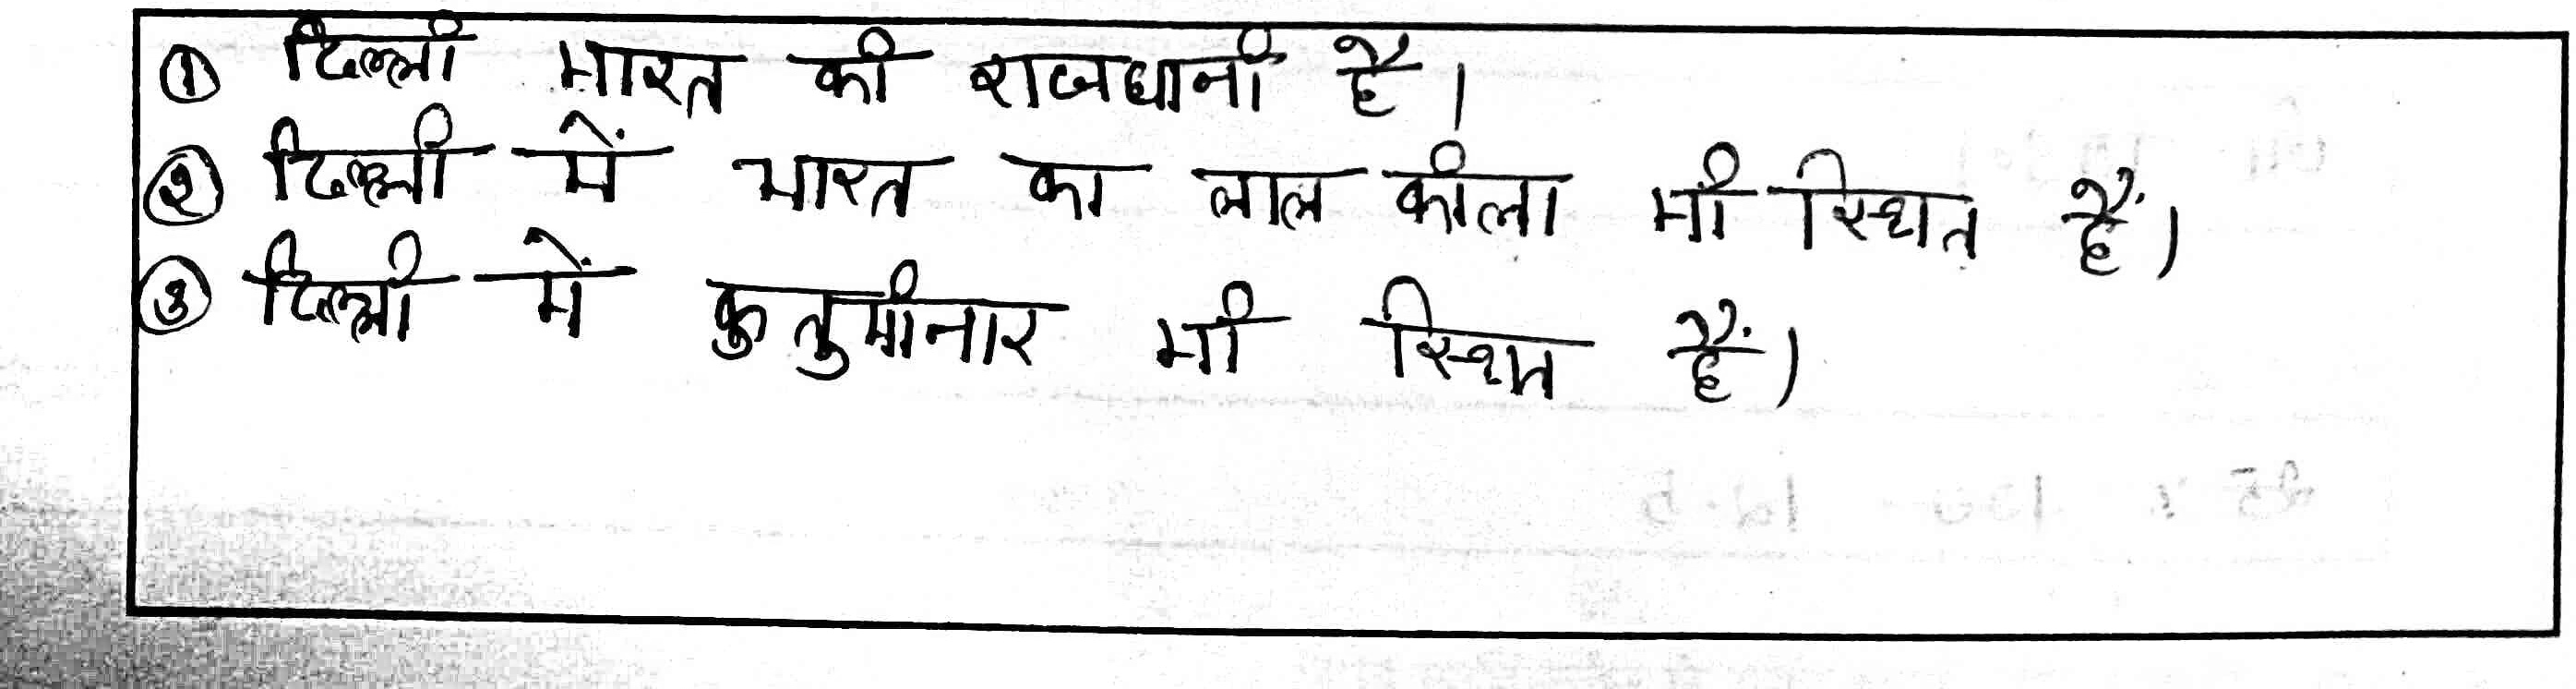 ① दिल्ली भारत की राजधानी है।
② दिल्ली में भारत का लाल कीला भी स्थित हैं।
③ दिल्ली में कुतुमीनार भी स्थित हैं।